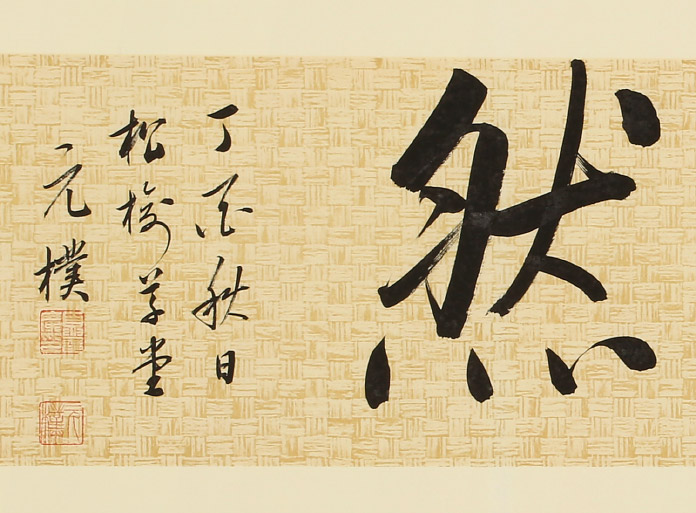 然
丁酉秋日
松梅草堂
元樸